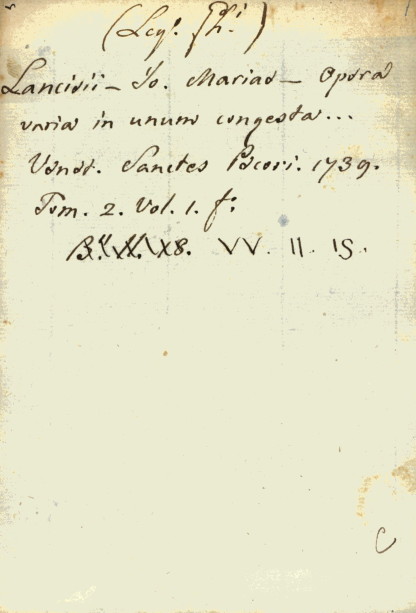 (Leg.
Lancisii – Jo. Mariae – Opera
varia in unum congesta...
Venet. Sanctes Pecori. 1739.
Tom. 2. Vol. 1. f:
VV. II. 15.
C